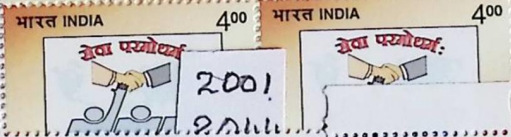 भारत INDIA 4.00
सेवा परमोधर्म
2001
भारत INDIA 4.00
सेवा परमोधर्म: